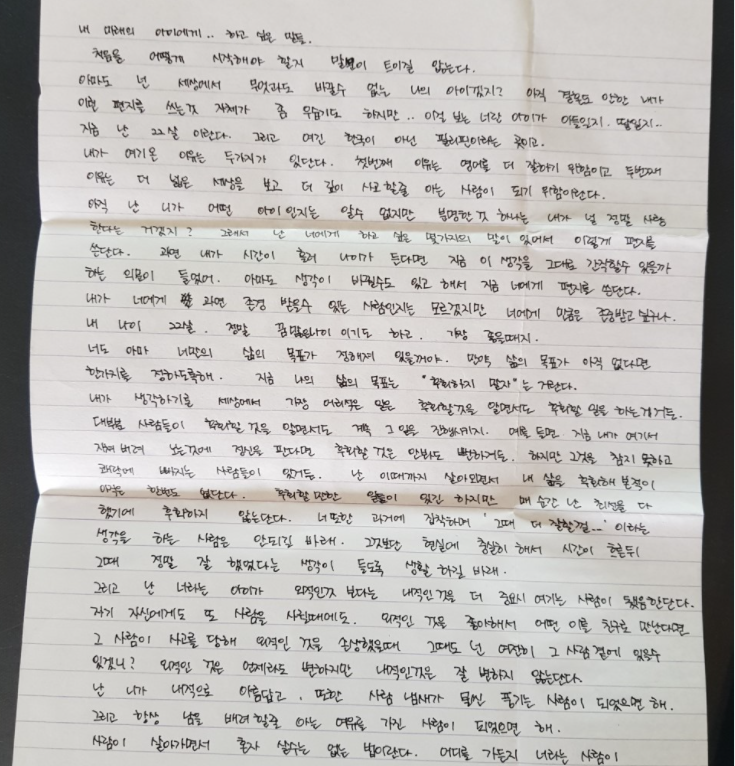 내 미래의 아이에게.. 하고 싶은 말들.
처음을 어떻게 시작해야 할지 말문이 트이질 않는다.
아마도 넌 세상에서 무엇과도 바꿀수 없는 나의 아이겠지? 아직 결혼도 안한 내가
이런 편지를 쓰는것 자체가 좀 우습기도 하지만.. 이걸 보는 너란 아이가 아들일지. 딸일지..
지금 난 22살 이란다. 그리고 여긴 한국이 아닌 필리핀이라는 곳이고.
내가 여기온 이유는 두가지가 있단다. 첫번째 이유는 영어를 더 잘하기 위함이고 두번째
이유는 더 넓은 세상을 보고 더 깊이 사고할줄 아는 사람이 되기 위함이란다.
아직 난 니가 어떤 아이인지는 알수 없지만 분명한 것 하나는 내가 널 정말 사랑
한다는 거겠지? 그래서 난 너에게 하고 싶은 몇가지의 말이 있어서 이렇게 편지를
쓴단다. 과연 내가 시간이 흘러 나이가 든다면 지금 이 생각을 그대로 간직할수 있을까
하는 의문이 들었어. 아마도 생각이 바뀔수도 있고 해서 지금 너에게 편지를 쓴단다.
내가 너에게 과연 존경 받을수 있는 사람인지는 모르겠지만 너에게 만큼은 존중받고 싶구나.
내 나이 22살. 정말 꿈많은나이 이기도 하고. 가장 좋을때지.
너도 아마 너만의 삶의 목표가 정해져 있을꺼야. 만약 삶의 목표가 아직 없다면
한가지를 정하도록해. 지금 나의 삶의 목표는 "후회하지 말자"는 거란다.
내가 생각하기를 세상에서 가장 어리석은 일은 후회할것을 알면서도 후회할 일을 하는거거든.
대부분 사람들이 후회할 것을 알면서도 계속 그 일을 진행시키지. 예를 들면 지금 내가 여기서
쟁여 버려 노는것에 정신을 판다면 후회할 것은 안봐도 뻔하거든. 하지만 그것을 참지 못하고
쾌락에 빠지는 사람들이 있거든. 난 이때까지 살아오면서 내 삶을 후회해 본적이
아직은 한번도 없단다. 후회할만한 일들이 있긴 하지만 매 순간 난 최선을 다
했기에 후회하지 않는단다. 너또한 과거에 집착하며 '그때 더 잘할껄..' 이라는
생각을 하는 사람은 안되길 바래. 그것보단 현실에 충실히 해서 시간이 흐른뒤
그때 정말 잘 했었다는 생각이 들도록 생활 하길 바래.
그리고 난 너라는 아이가 외적인것 보다는 내적인것을 더 중요시 여기는 사람이 됐음한단다.
자기 자신에게도 또 사람을 사귈때에도. 외적인 것을 좋아해서 어떤 이를 친구로 만난다면
그 사람이 사고를 당해 외적인 것을 손상했을때 그때도 넌 여전히 그 사람 곁에 있을수
있겠니? 외적인 것은 언제라도 변하지만 내적인것은 잘 변하지 않는단다.
난 니가 내적으로 아름답고, 또한 사람 냄새가 물씬 풍기는 사람이 되었으면 해.
그리고 항상 남을 배려할줄 아는 여유를 가진 사람이 되었으면 해.
사람이 살아가면서 혼자 살수는 없는 법이란다. 어디를 가든지 너라는 사람이